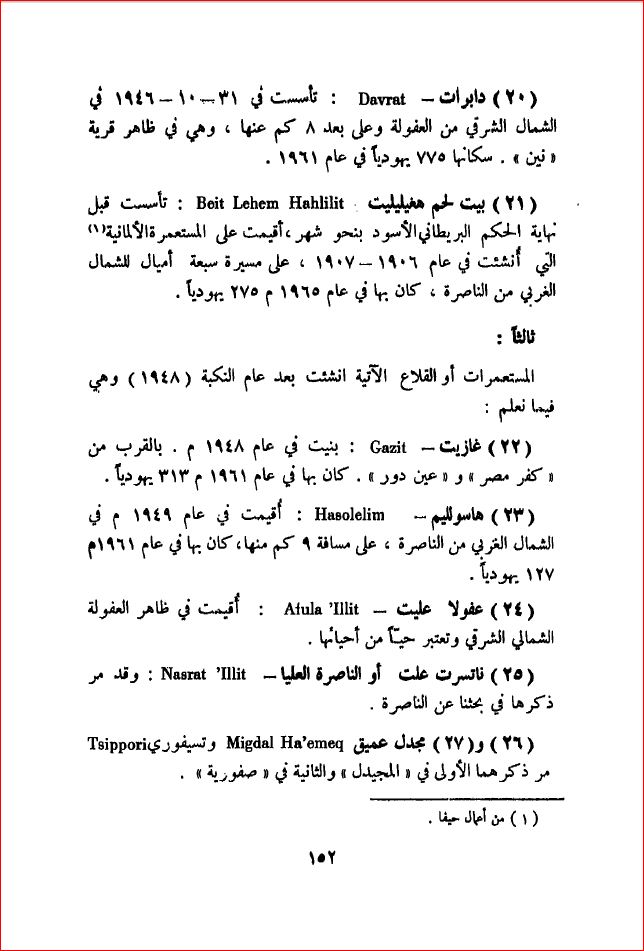 (٢٠) دابرات – Davrat : تأسست في ٣١ – ١٠ – ١٩٤٦ في
الشمال الشرقي من العفولة وعلى بعد ٨ كم عنها ، وهي في ظاهر قرية
« نين » . سكانها ٧٧٥ يهودياً في عام ١٩٦١ .
(٢١) بيت لحم هغيليليت Beit Lehem Hahlilit : تأسست قبل
نهاية الحكم البريطاني الأسود بنحو شهر ، أقيمت على المستعمرة الألمانية(١)
التي أُنشئت في عام ١٩٠٦ – ١٩٠٧ ، على مسيرة سبعة أميال للشمال
الغربي من الناصرة ، كان بها في عام ١٩٦٥ م ٢٧٥ يهودياً .
ثالثاً :
المستعمرات أو القلاع الآتية انشئت بعد عام النكبة ( ١٩٤٨ ) وهي
فيما نعلم :
(٢٢) غازيت – Gazit : بنيت في عام ١٩٤٨ م . بالقرب من
« كفر مصر » و « عين دور » . كان بها في عام ١٩٦١ م ٣١٣ يهودياً .
(٢٣) هاسولليم – Hasolelim : أُقيمت في عام ١٩٤٩ م في
الشمال الغربي من الناصرة ، على مسافة ٩ كم منها، كان بها في عام ١٩٦١م
١٢٧ يهودياً .
(٢٤) عفولا عليت – Afula 'Illit : أُقيمت في ظاهر العفولة
الشمالي الشرقي وتعتبر حيّاً من أحيائها .
(٢٥) ناتسرت علت أو الناصرة العليا – Nasrat 'Illit : وقد مر
ذكرها في بحثنا عن الناصرة .
(٢٦) و(٢٧) مجدل عميق Migdal Ha'emeq وتسيفوري Tsippori
مر ذكرهما الأولى في « المجيدل » والثانية في « صفورية » .
(١) من أعمال حيفا .
١٥٢